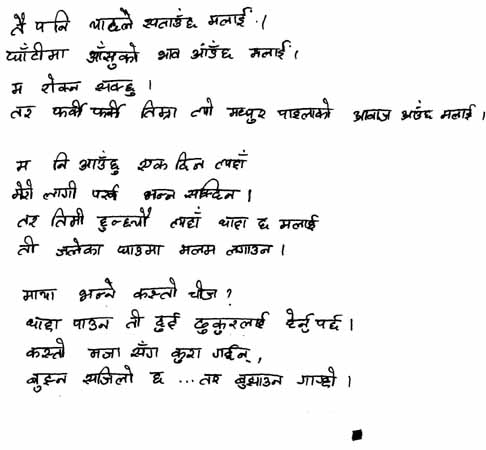 तै पनि चाहले सताउँछ मलाई ।
घाँटीमा आँसुको भाव आँउछ मलाई ।
म रोक्न सक्छु ।
तर फर्की फर्की तिम्रा त्यो मधुर पाइलाको आवाज अउँछ मलाई ।
म नि आउँछु एक दिन त्यहाँ
मेरो लागी पर्ख भन्न सक्दिन ।
तर तिमी हुन्छ्यौ त्यहाँ थाहा छ मलाई
ती जलेका घाउमा मलम लगाउन ।
माया भन्ने कस्तो चीज ?
थाहा पाउन ती दुई ढुकुरलाई हेर्नु पर्द ।
कस्तो मजा सँग कुरा गर्छन्,
बुझ्न सजिलो छ ...तर बुझाउन गाह्रो ।